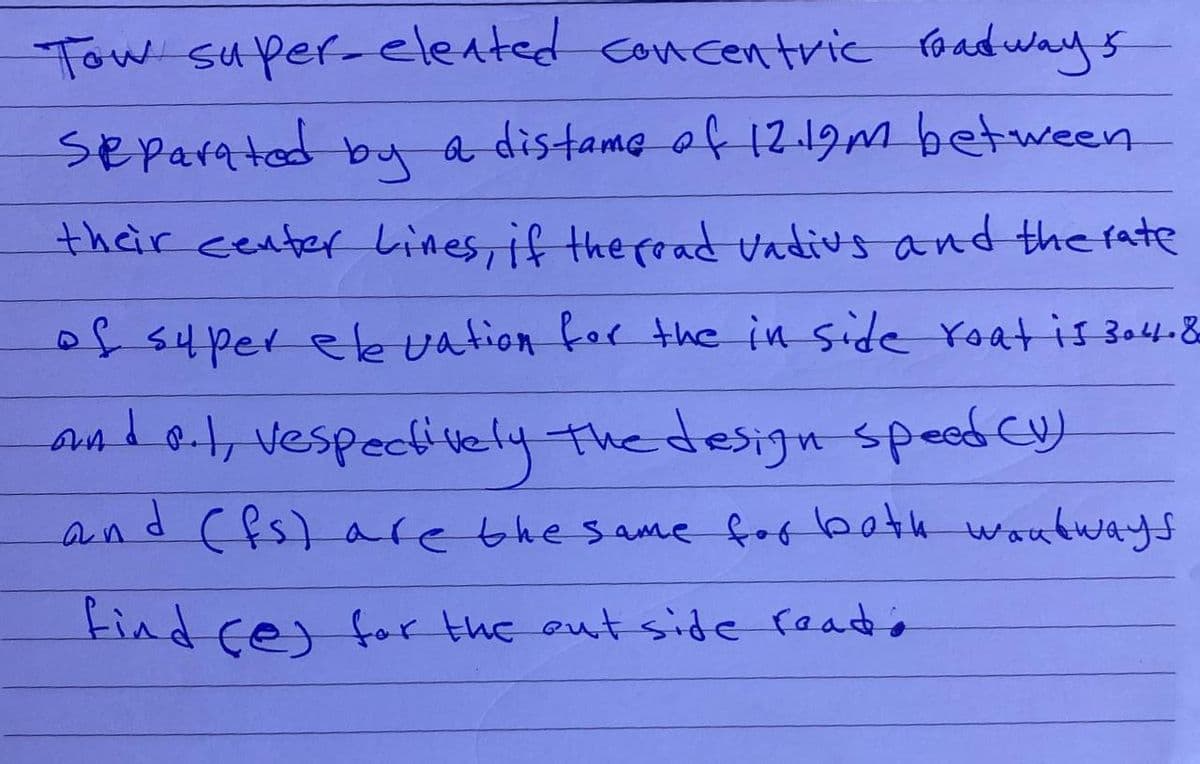 Tow super-eleated concentric roadways
separated by a distame of 12.19m between
their center Lines, if the road vadius and the rate
of super ele vation for the in side roat is 304.8
and 0.1, vespectively the design speed (v)
and (fs) are the same for both wautways
find (e) for the out side road.